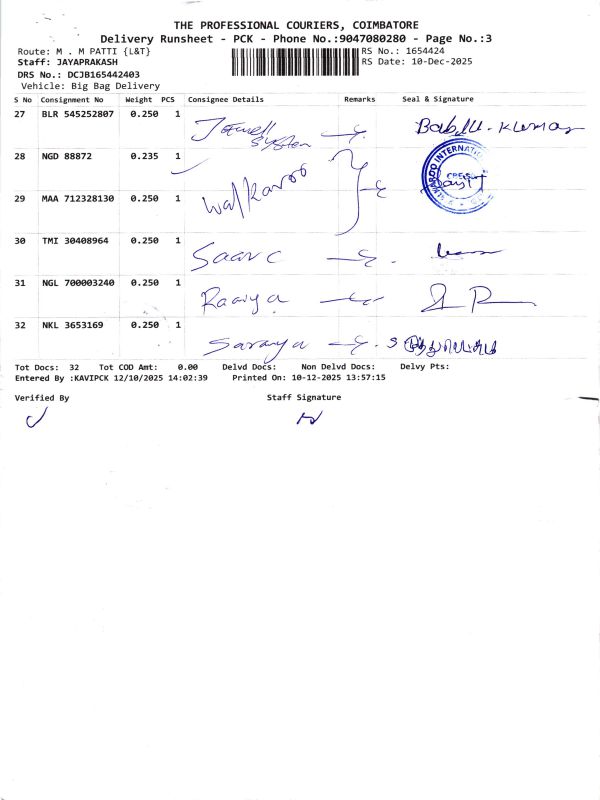 THE PROFESSIONAL COURIERS, COIMBATORE
Delivery Runsheet - PCK - Phone No.:9047080280 - Page No.:3
Route: M . M PATTI {L&T} RS No.: 1654424
Staff: JAYAPRAKASH RS Date: 10-Dec-2025
DRS No.: DCJB165442403
Vehicle: Big Bag Delivery
S No Consignment No Weight PCS Consignee Details Remarks Seal & Signature
27 BLR 545252807 0.250 1 System
28 NGD 88872 0.235 1
29 MAA 712328130 0.250 1 Walkaroo
30 TMI 30408964 0.250 1 Saarc
31 NGL 700003240 0.250 1
32 NKL 3653169 0.250 1
Tot Docs: 32 Tot COD Amt: 0.00 Delvd Docs: Non Delvd Docs: Delvy Pts:
Entered By :KAVIPCK 12/10/2025 14:02:39 Printed On: 10-12-2025 13:57:15
Verified By Staff Signature